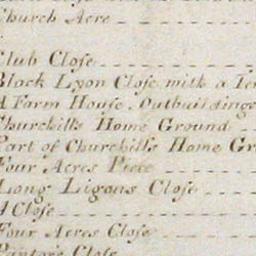 Church Acre
Club Close
Black Lyon Close with a Ten
A Farm House, Outbuildings
Churchills Home Ground
Part of Churchills Home Gr
Four Acres Piece
Long Ligons Close
A Close
Four Acres Close
Close